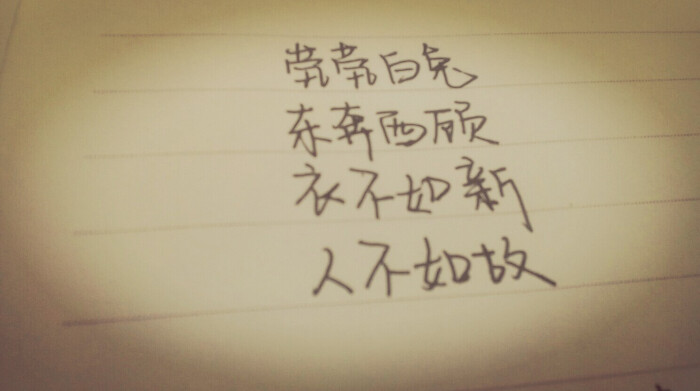 茕茕白兔
东奔西顾
衣不如新
人不如故